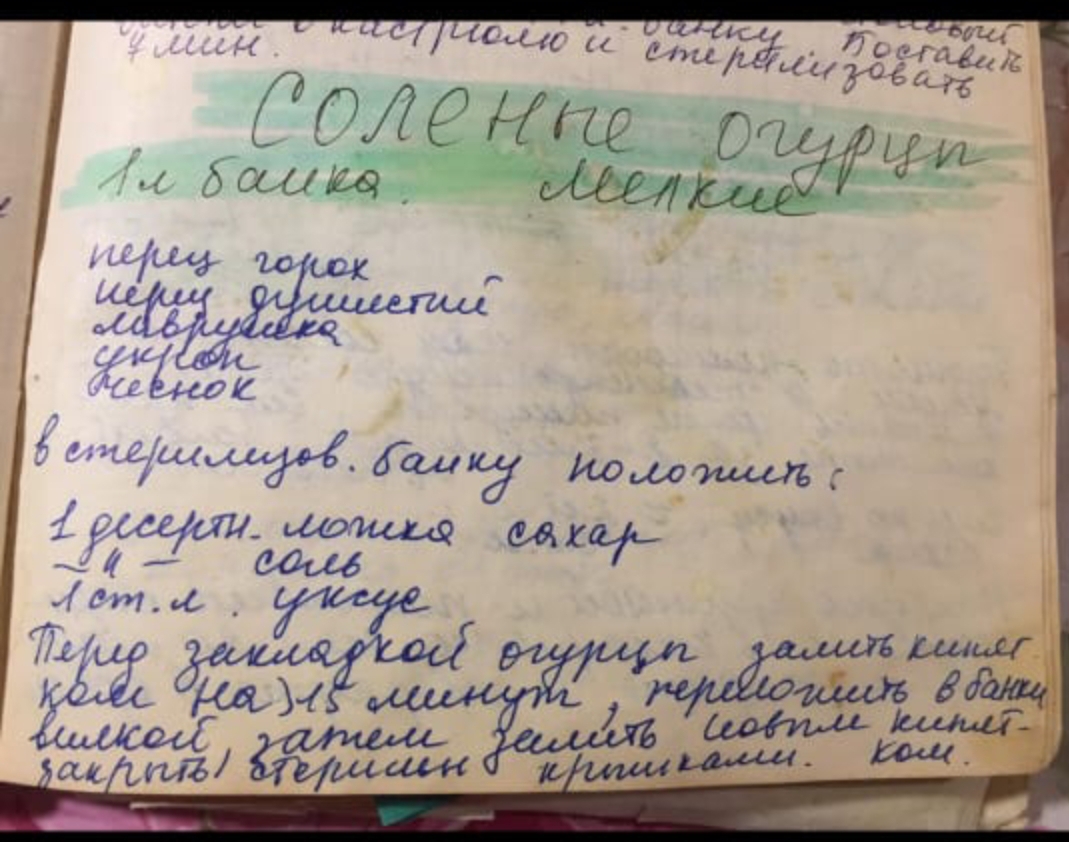 в кастрюлю и банку Поставить
7 мин. стерилизовать
Соленые огурцы
1л банка. Мелкие
перец горох
перец душистый
лаврушка
укроп
чеснок
в стерилизов. банку положить:
1 десертн. ложка сахар
— " — соль
1 ст. л. уксус
Перед закладкой огурцы залить кипят-
ком (на) 15 минут, переложить в банки
вилкой, затем залить новым кипят-
закрыть стерильн крышками. ком.